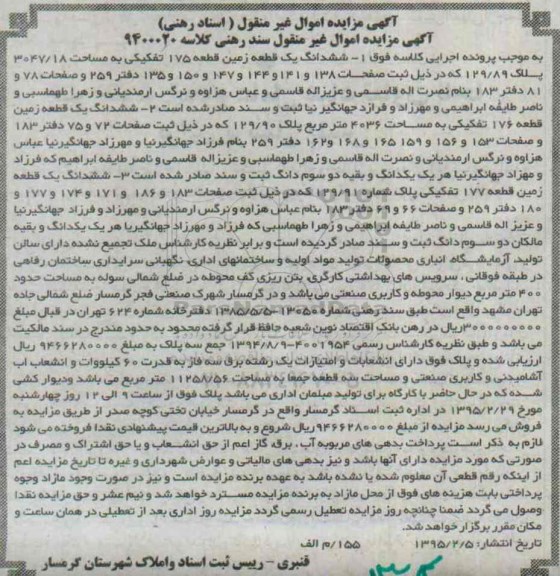 آگهی مزایده اموال غیر منقول ( اسناد رهنی)
آگهی مزایده اموال غیر منقول سند رهنی کلاسه ۹۴۰۰۰۲۰
به موجب پرونده اجرایی کلاسه فوق ۱- ششدانگ یک قطعه زمین قطعه ۱۷۵ تفکیکی به مساحت ۳۰۴۷/۱۸
پلاک ۱۲۹/۸۹ که در ذیل ثبت صفحات ۱۳۸ و ۱۴۱ و ۱۴۴ و ۱۴۷ و ۱۵۰ و ۱۳۵ دفتر ۲۵۹ و صفحات ۷۸ و
۸۱ دفتر ۱۸۳ بنام نصرت اله قاسمی و عزیزاله قاسمی و عباس هزاوه و نرگس ارمندیانی و زهرا طهماسبی و
ناصر طایفه ابراهیمی و مهرزاد و فرازد جهانگیر نیا ثبت و سند صادر شده است ۲- ششدانگ یک قطعه زمین
قطعه ۱۷۶ تفکیکی به مساحت ۴۰۳۶ متر مربع پلاک ۱۲۹/۹۰ که در ذیل ثبت صفحات ۷۲ و ۷۵ دفتر ۱۸۳
و صفحات ۱۵۳ و ۱۵۶ و ۱۵۹ و ۱۶۵ و ۱۶۸ و ۱۶۲ دفتر ۲۵۹ بنام فرزاد جهانگیرنیا و مهرزاد جهانگیرنیا عباس
هزاوه و نرگس ارمندیانی و نصرت اله قاسمی و زهرا طهماسبی و عزیزاله قاسمی و ناصر طایفه ابراهیم که فرزاد
و مهزاد جهانگیرنیا هر یک یکدانگ و بقیه دو سوم دانگ ثبت و سند صادر شده است ۳- ششدانگ یک قطعه
زمین قطعه ۱۷۷ تفکیکی پلاک شماره ۱۲۹/۹۱ که در ذیل ثبت صفحات ۱۸۳ و ۱۸۶ و ۱۷۱ و ۱۷۴ و ۱۷۷ و
۱۸۰ دفتر ۲۵۹ و صفحات ۶۶ و ۶۹ دفتر ۱۸۳ بنام عباس هزاوه و نرگس ارمندیانی و مهرزاد و فرزاد جهانگیرنیا
و عزیز اله قاسمی و ناصر طایفه ابراهیمی و زهرا طهماسبی که فرزاد و مهرزاد جهانگیریا هر یک یکدانگ و بقیه
مالکان دو سوم دانگ ثبت و سند صادر گردیده است و برابر نظریه کارشناس ملک تجمیع شده دارای سالن
تولید، آزمایشگاه، انباری محصولات تولید مواد اولیه و ساختمانهای اداری، نگهبانی سرایداری ساختمان رفاهی
در طبقه فوقانی ، سرویس های بهداشتی کارگری، بتن ریزی کف محوطه در ضلع شمالی سوله به مساحت حدود
۴۰۰ متر مربع دیوار محوطه و کاربری صنعتی می باشد و در گرمسار شهرک صنعتی فجر گرمسار ضلع شمالی جاده
تهران مشهد واقع است طبق سند رهنی شماره ۱۳۰۵۰-۱۳۸۵/۵/۵ دفترخانه شماره ۶۲۴ تهران در قبال مبلغ
ریال در رهن بانک اقتصاد نوین شعبه حافظ قرار گرفته محدود به حدود مندرج در سند مالکیت
می باشد و طبق نظریه کارشناس رسمی ۴۰۰۱۹۵۴-۱۳۹۴/۸/۹ جمع سه پلاک به مبلغ ۹۴۶۶۲۸۰۰۰۰ ریال
ارزیابی شده و پلاک فوق دارای انشعابات و امتیازات یک رشته برق سه فاز به قدرت ۶۰ کیلووات و انشعاب اب
آشامیدنی و کاربری صنعتی و مساحت سه قطعه جمعا به مساحت ۱۱۲۵۸/۵۶ متر مربع می باشد و دیوار کشی
شده که در حال حاضر با کارگاه برای تولید مبلمان اداری می باشد پلاک فوق از ساعت ۹ الی ۱۲ روز چهارشنبه
مورخ ۱۳۹۵/۲/۲۹ در اداره ثبت اسناد گرمسار واقع در گرمسار خیابان تختی کوچه صدر از طریق مزایده به
فروش می رسد مزایده از مبلغ ۹۴۶۶۲۸۰۰۰۰ ریال شروع و به بالاترین قیمت پیشنهادی نقدا فروخته می شود
لازم به ذکر است پرداخت بدهی های مربوبه آب، برق، گاز اعم از حق انشعاب و یا حق اشتراک و مصرف در
صورتی که مورد مزایده دارای آنها باشد و نیز بدهی های مالیاتی و عوارض شهرداری و غیره تا تاریخ مزایده اعم
از اینکه رقم قطعی آن معلوم شده یا نشده باشد به عهده برنده مزایده است و نیز در صورت وجود مازاد وجوه
پرداختی بابت هزینه های فوق از محل مازاد به برنده مزایده مسترد خواهد شد و نیم عشر و حق مزایده نقدا
وصول می گردد ضمنا چنانچه روز مزایده تعطیل رسمی گردد مزایده روز اداری بعد از تعطیلی در همان ساعت و
مکان مقرر برگزار خواهد شد.
تاریخ انتشار: ۱۳۹۵/۲/۵ ۱۵۵/م الف
قنبری - رییس ثبت اسناد واملاک شهرستان گرمسار